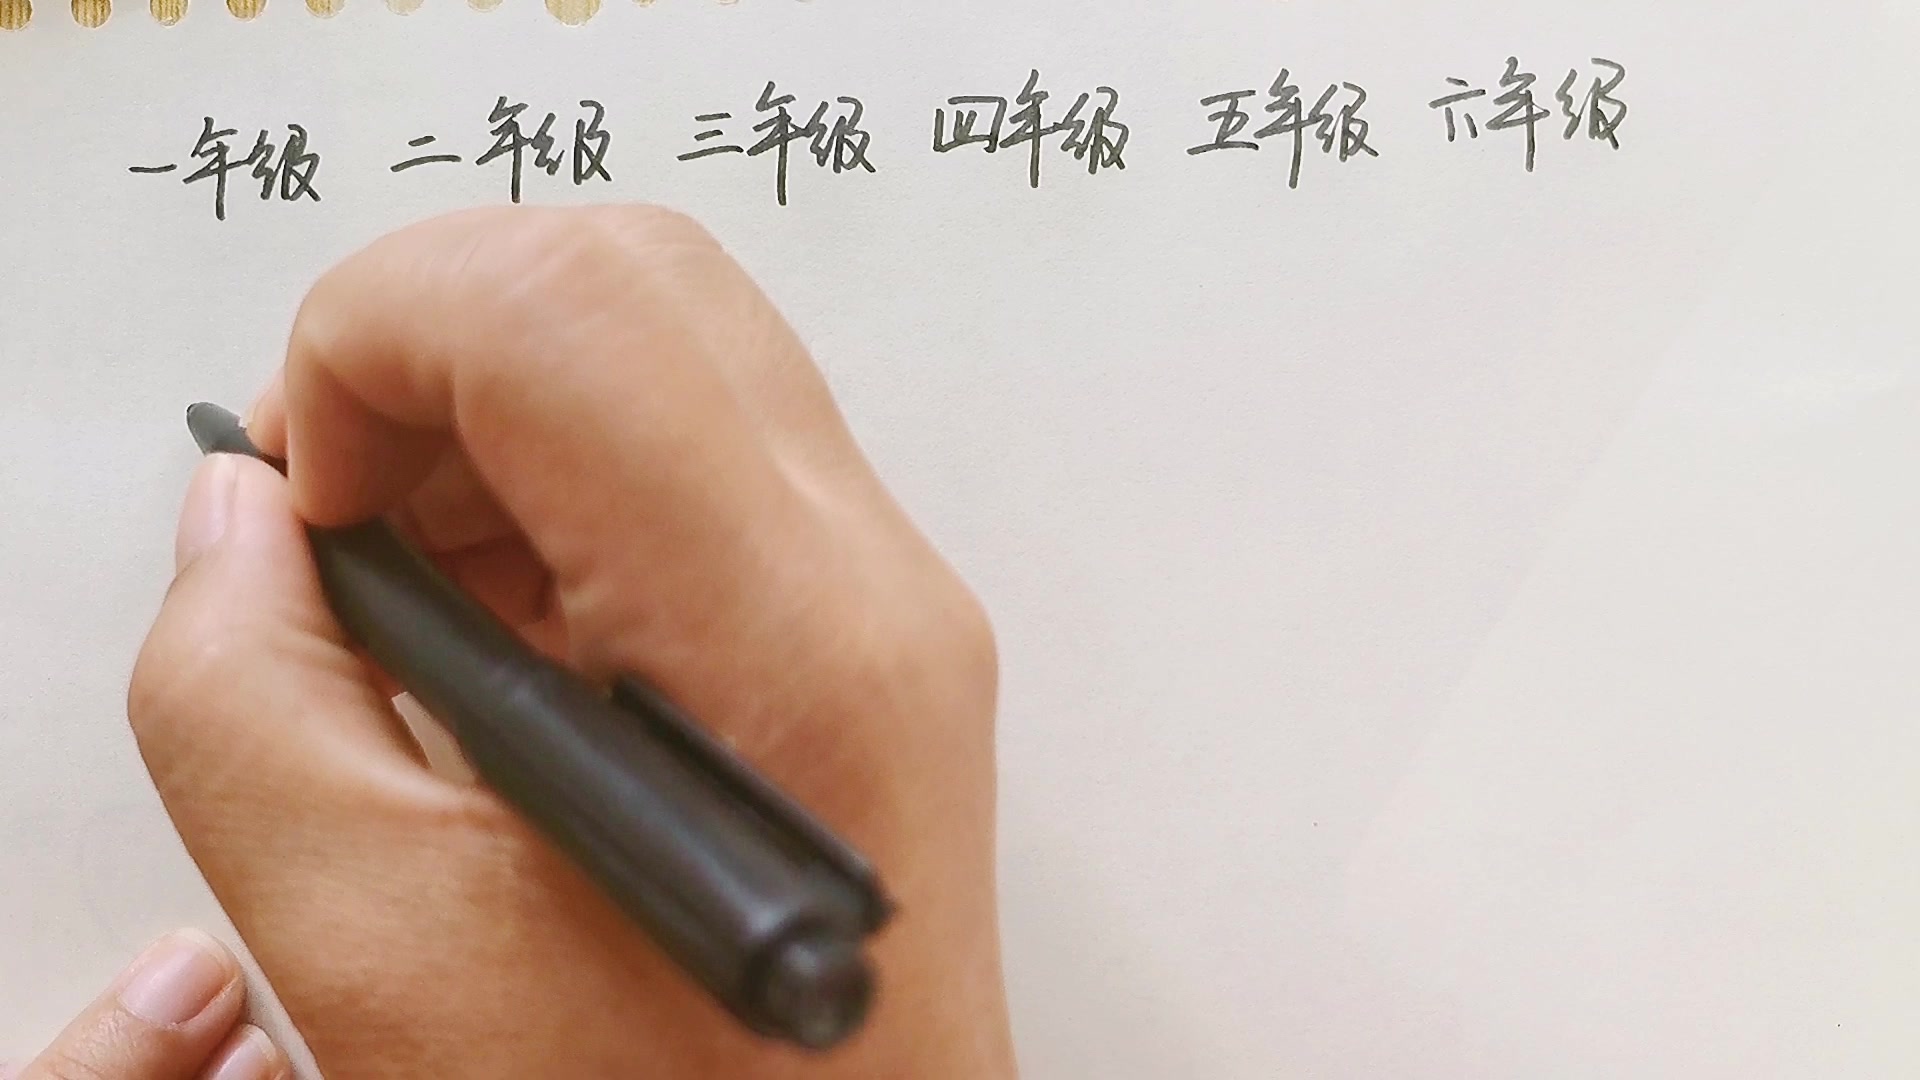 一年级 二年级 三年级 四年级 五年级 六年级